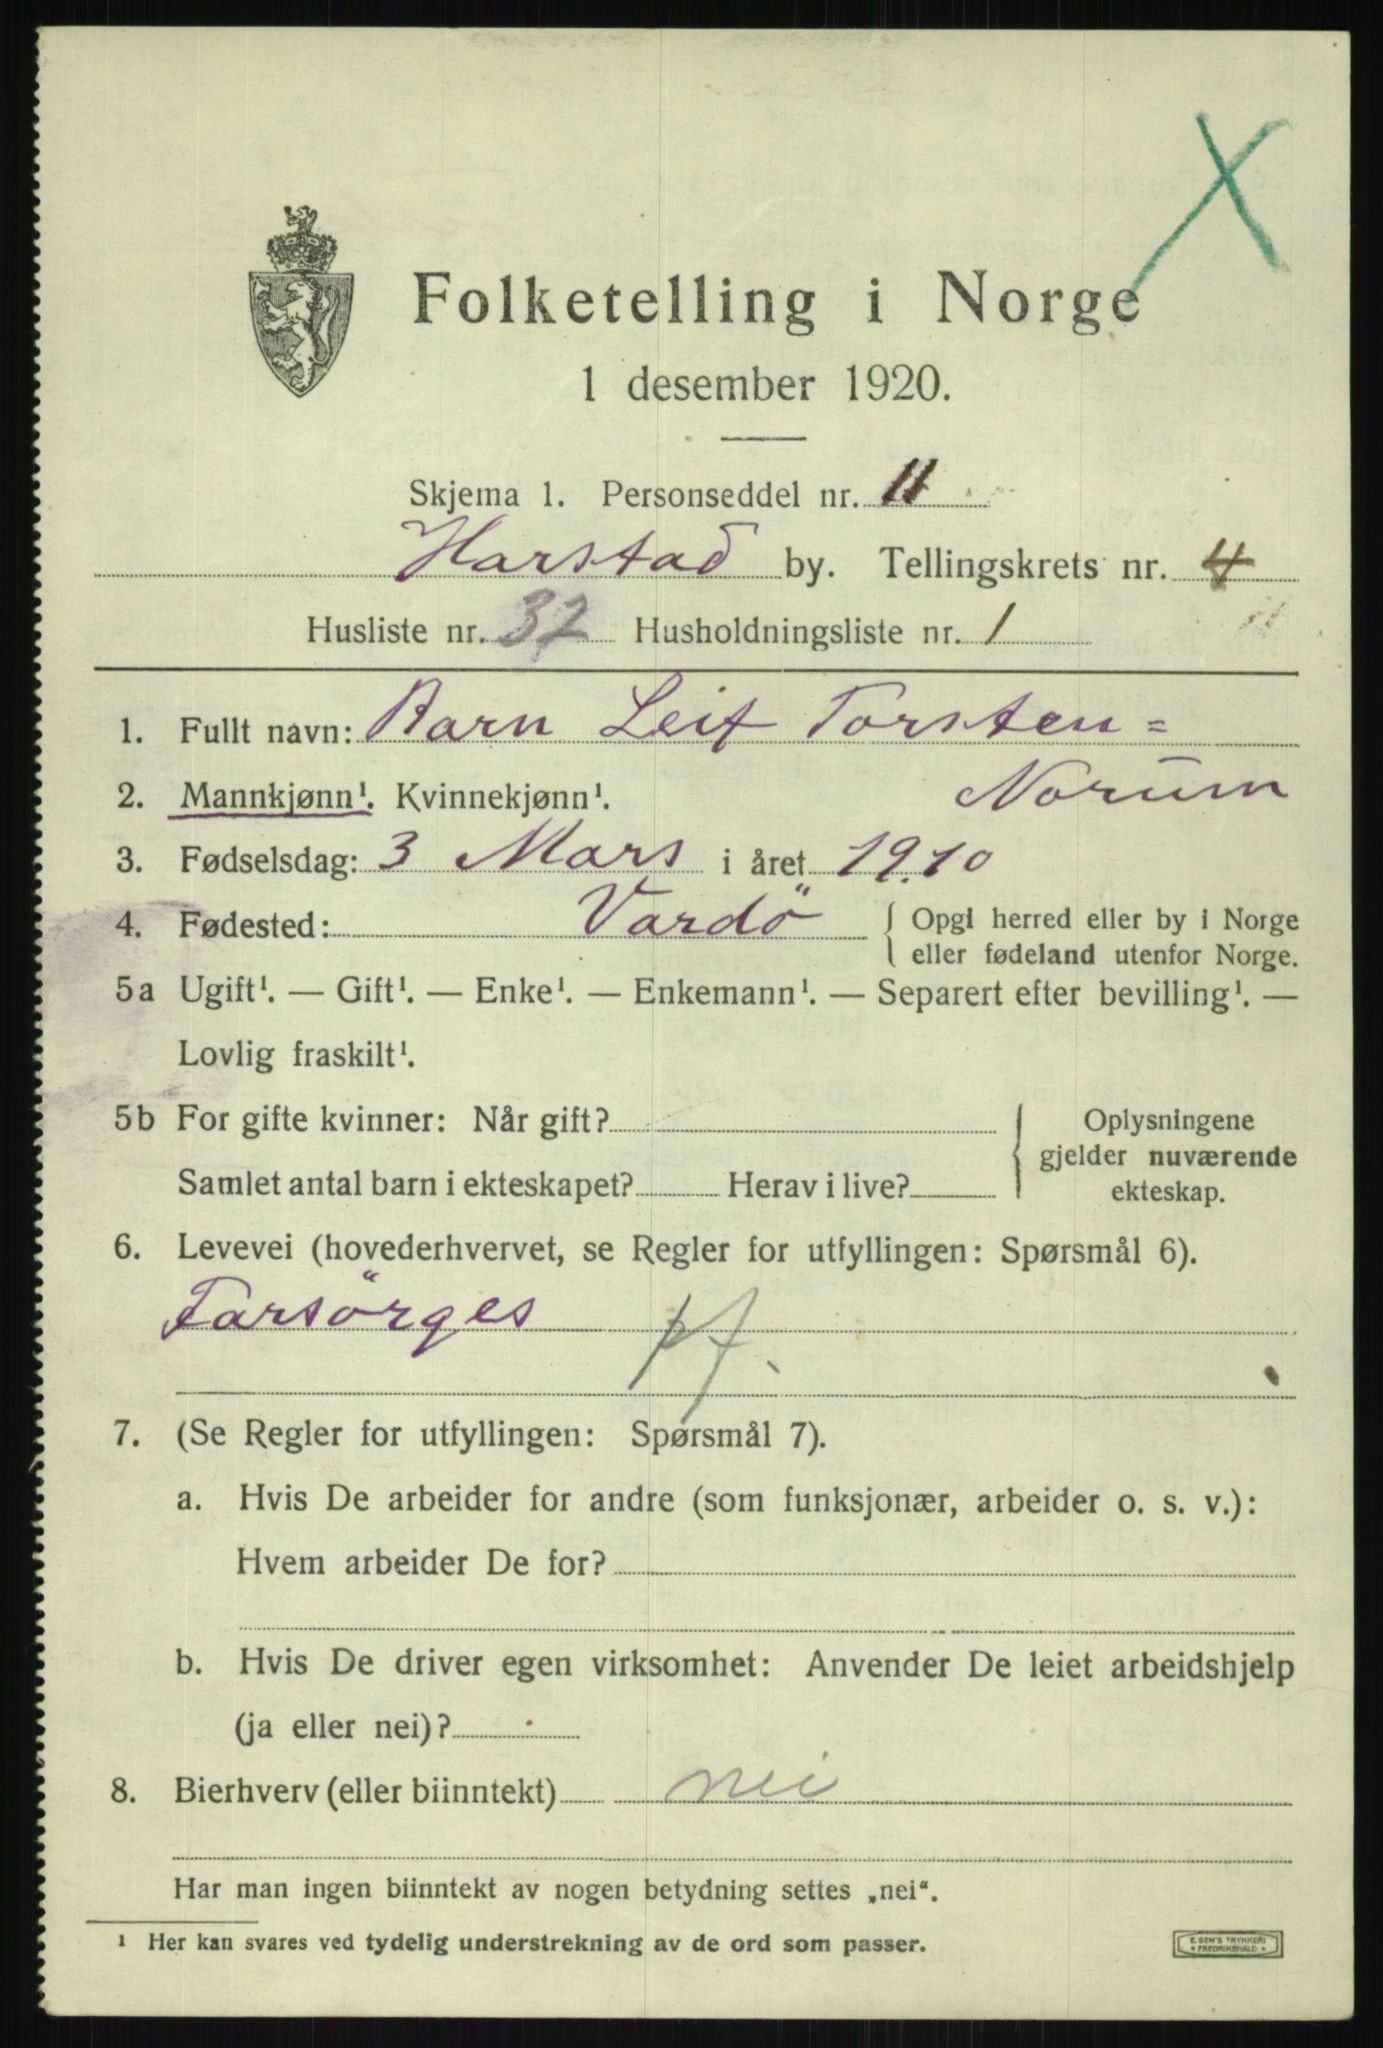 Folketelling i Norge
1 desember 1920.
Skjema 1. Personseddel nr. 11
Harstad by. Tellingskrets nr. 4
Husliste nr. 37 Husholdningsliste nr. 1
1. Fullt navn: Barn Leif Torsten=
2. Mannkjønn¹. Kvinnekjønn¹. Norum
3. Fødselsdag: 3 Mars i året 19.10
4. Fødested: Vardö { Opgi herred eller by i Norge
eller fødeland utenfor Norge.
5a Ugift¹. — Gift¹. — Enke¹. — Enkemann¹. — Separert efter bevilling¹. —
Lovlig fraskilt¹.
5b For gifte kvinner: Når gift? { Oplysningene
gjelder nuværende
Samlet antal barn i ekteskapet? Herav i live? ekteskap.
6. Levevei (hovederhvervet, se Regler for utfyllingen: Spørsmål 6).
Forsörges
7. (Se Regler for utfyllingen: Spørsmål 7).
a. Hvis De arbeider for andre (som funksjonær, arbeider o. s. v.):
Hvem arbeider De for?
b. Hvis De driver egen virksomhet: Anvender De leiet arbeidshjelp
(ja eller nei)?
8. Bierhverv (eller biinntekt) nei
Har man ingen biinntekt av nogen betydning settes „nei“.
¹ Her kan svares ved tydelig understrekning av de ord som passer.
E. SEM'S TRYKKERI
* FREDRIKSHALD *